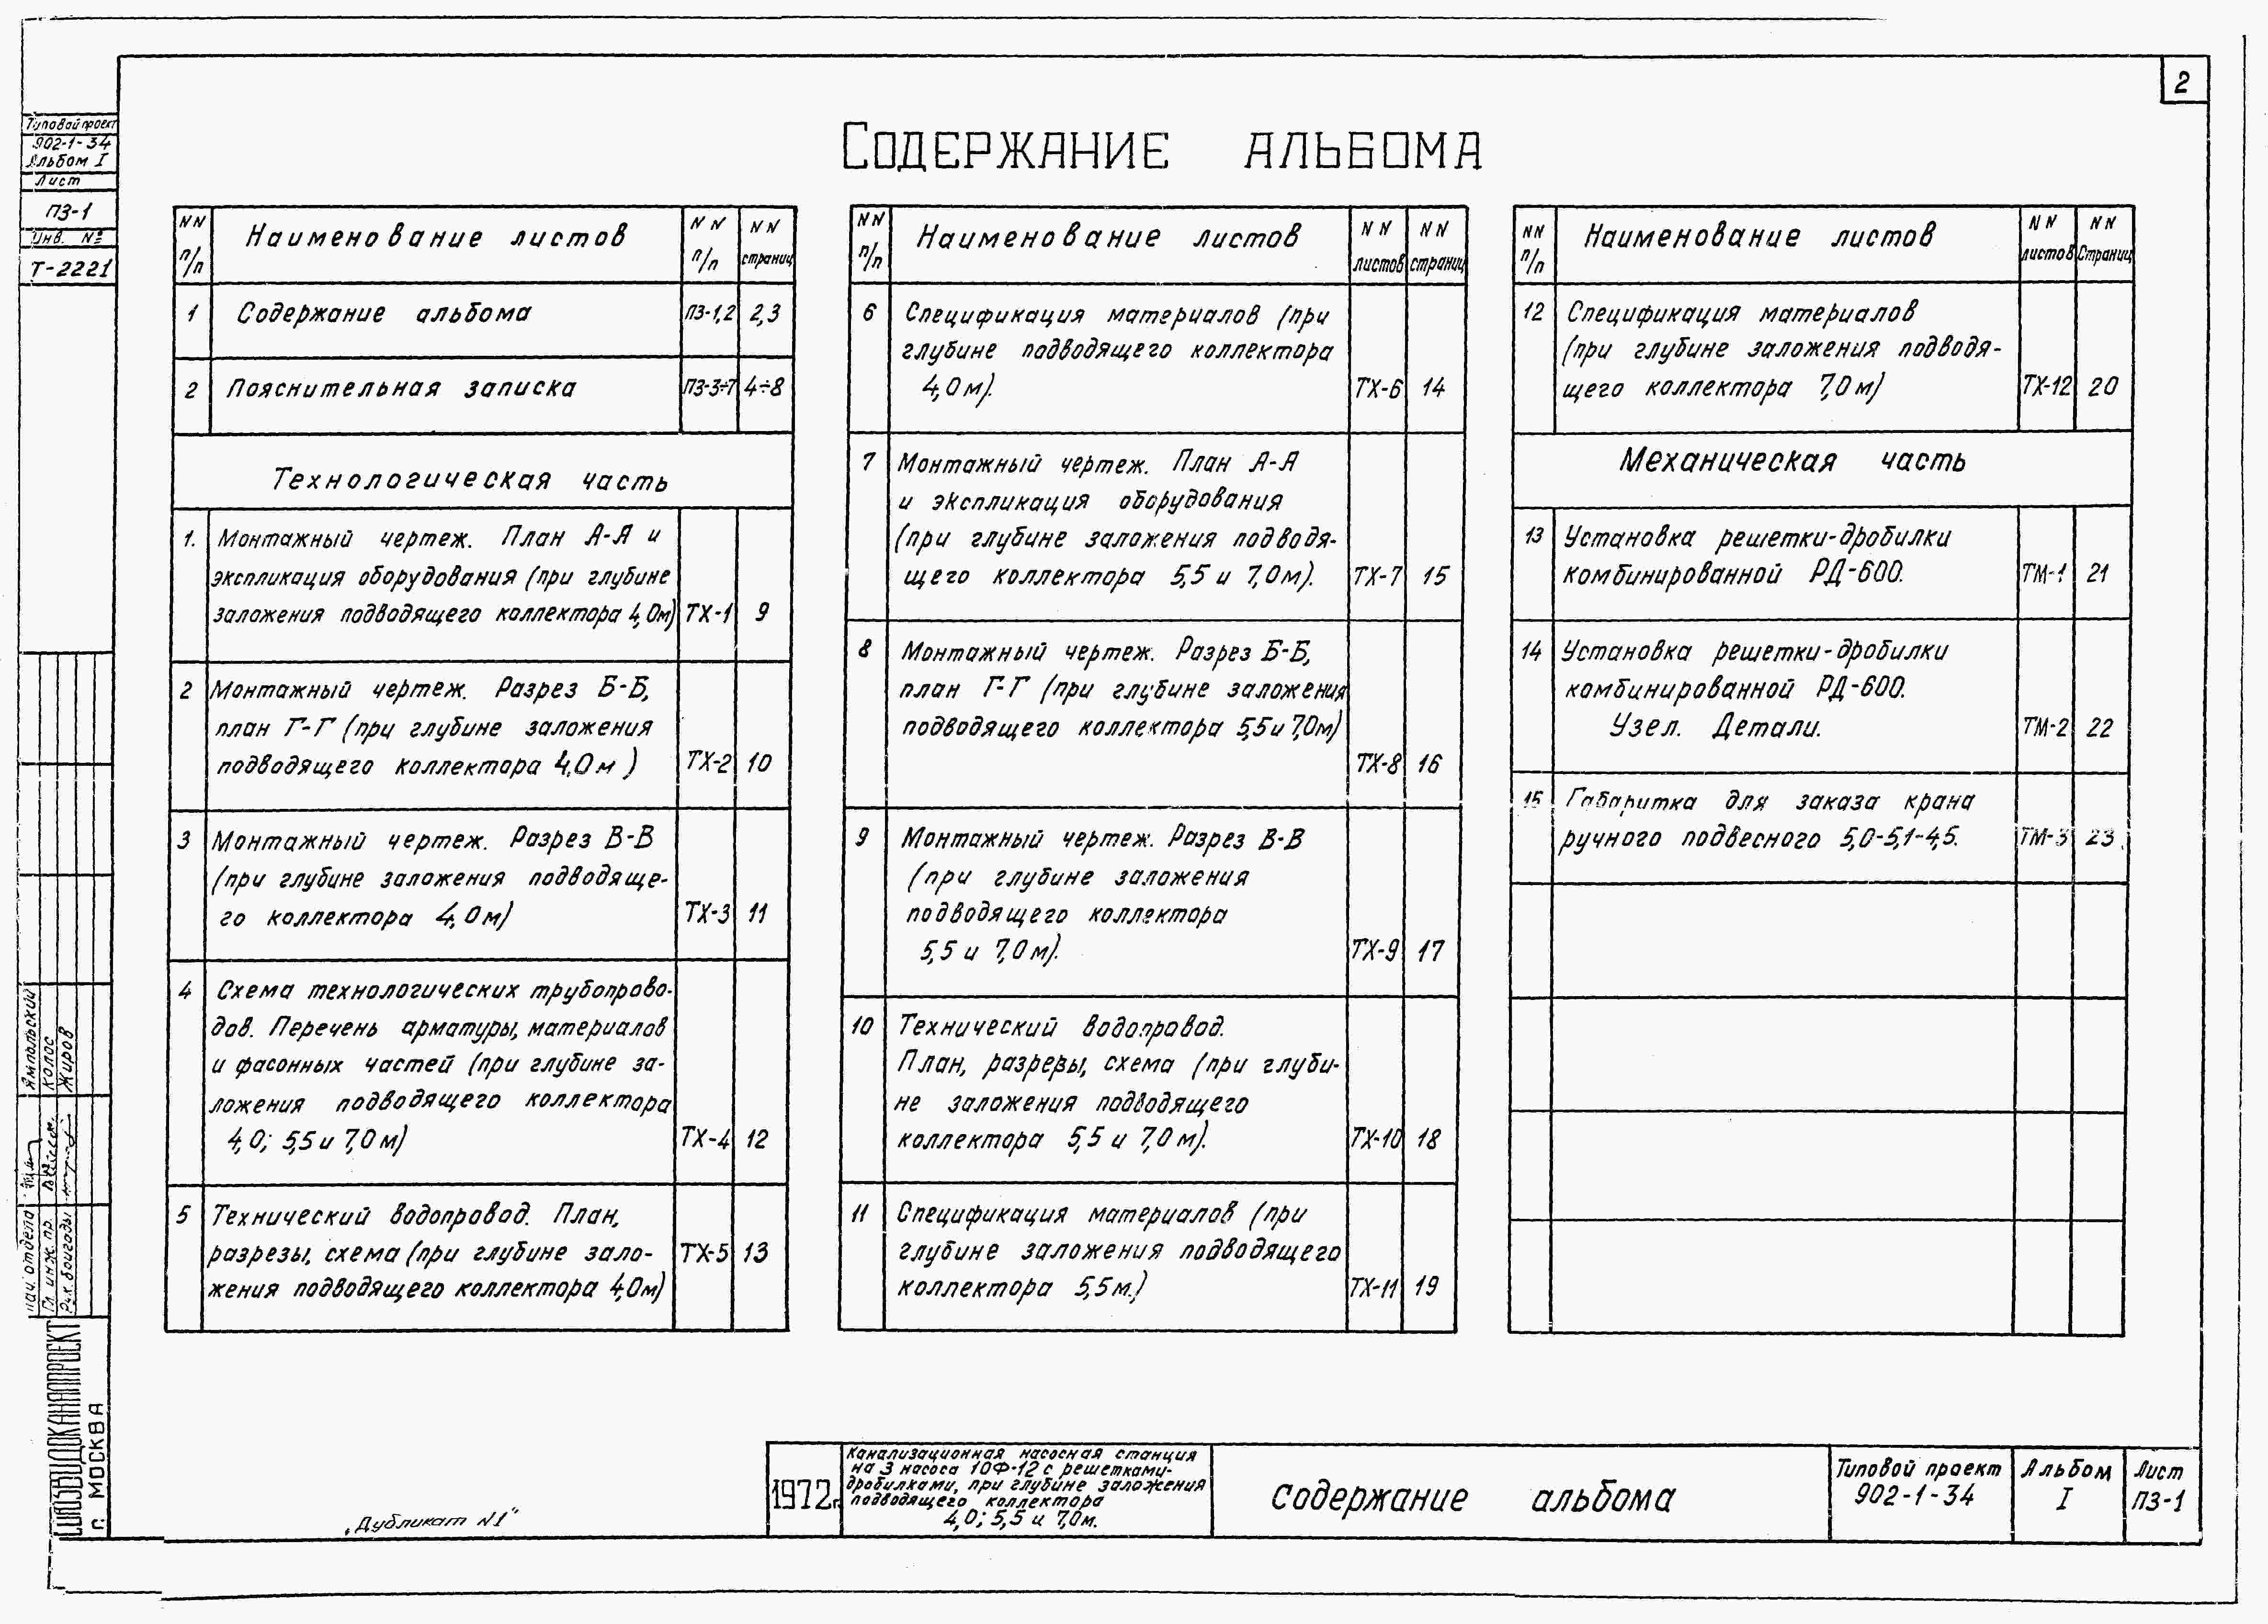 2
Типовой проект
902-1-34
Альбом I
Лист
ПЗ-1
Инв. №
Т-2221
СОДЕРЖАНИЕ АЛЬБОМА
NN п/п
Наименование листов
NN п/п
NN страниц
1 Содержание альбома ПЗ-1,2 2,3
2 Пояснительная записка ПЗ-3÷7 4÷8
Технологическая часть
1. Монтажный чертеж. План А-А и
экспликация оборудования (при глубине
заложения подводящего коллектора 4,0м) ТХ-1 9
2 Монтажный чертеж. Разрез Б-Б,
план Г-Г (при глубине заложения
подводящего коллектора 4,0м) ТХ-2 10
3 Монтажный чертеж. Разрез В-В
(при глубине заложения подводяще-
го коллектора 4,0м) ТХ-3 11
4 Схема технологических трубопрово-
дов. Перечень арматуры, материалов
и фасонных частей (при глубине за-
ложения подводящего коллектора
4,0; 5,5 и 7,0м) ТХ-4 12
5 Технический водопровод. План,
разрезы, схема (при глубине зало- ТХ-5 13
жения подводящего коллектора 4,0м)
NN п/п
Наименование листов
NN листов
NN страниц
6 Спецификация материалов (при
глубине подводящего коллектора
4,0м). ТХ-6 14
7 Монтажный чертеж. План А-А
и экспликация оборудования
(при глубине заложения подводя-
щего коллектора 5,5 и 7,0м). ТХ-7 15
8 Монтажный чертеж. Разрез Б-Б,
план Г-Г (при глубине заложения
подводящего коллектора 5,5 и 7,0м)
ТХ-8 16
9 Монтажный чертеж. Разрез В-В
(при глубине заложения
подводящего коллектора
5,5 и 7,0м). ТХ-9 17
10 Технический водопровод.
План, разрезы, схема (при глуби-
не заложения подводящего
коллектора 5,5 и 7,0м). ТХ-10 18
11 Спецификация материалов (при
глубине заложения подводящего
коллектора 5,5м.) ТХ-11 19
NN п/п
Наименование листов
NN листов
NN Страниц
12 Спецификация материалов
(при глубине заложения подводя-
щего коллектора 7,0м) ТХ-12 20
Механическая часть
13 Установка решетки-дробилки
комбинированной РД-600. ТМ-1 21
14 Установка решетки-дробилки
комбинированной РД-600.
Узел. Детали. ТМ-2 22
15 Габаритка для заказа крана
ручного подвесного 5,0-5,1-4,5. ТМ-3 23
Нач. отдела Ямпольский
Гл. инж. пр. Колос
Рук. бригады Жиров
СОЮЗВОДОКАНАЛПРОЕКТ
г. МОСКВА
„Дубликат N1"
1972г.
Канализационная насосная станция
на 3 насоса 10Ф-12 с решетками-
дробилками, при глубине заложения
подводящего коллектора
4,0; 5,5 и 7,0м.
содержание альбома
Типовой проект
902-1-34
Альбом
I
Лист
ПЗ-1